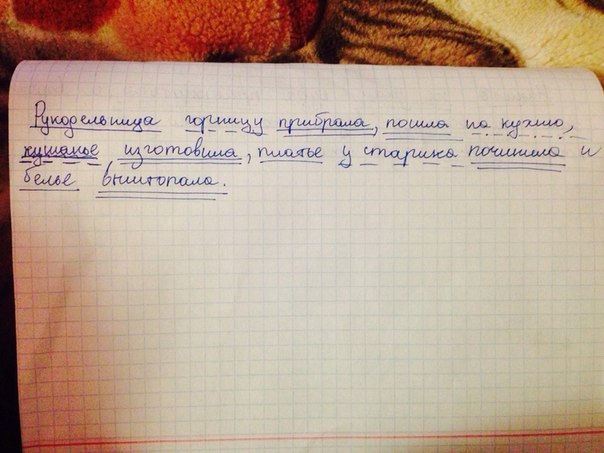 Рукодельница горницу прибрала, пошла на кухню,
кушанье изготовила, платье у старика починила и
белье выштопала.